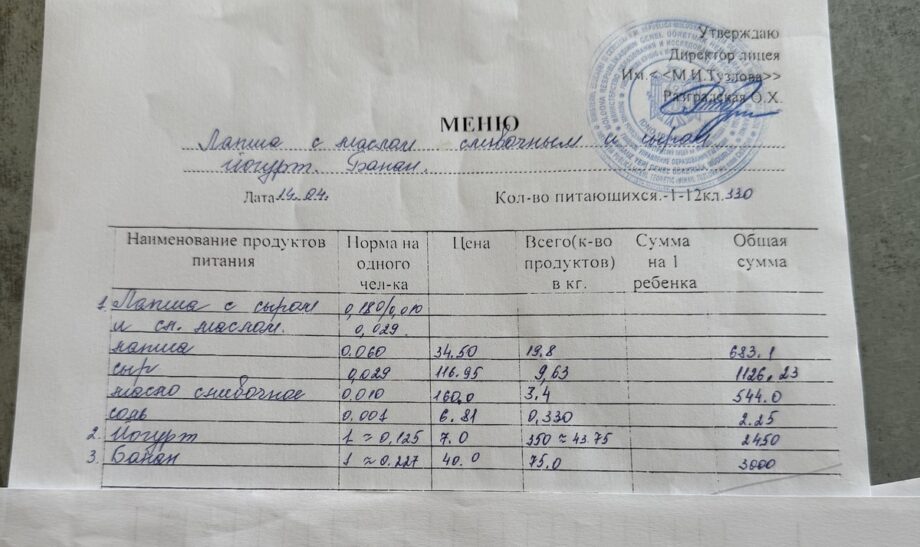 Утверждаю
Директор лицея
Им.< <М.И.Тузлова>>
Разградская О.Х.
МЕНЮ
Лапша с маслом сливочным и сыром
Йогурт. Банан.
Дата 24.04. Кол-во питающихся.-1-12кл. 330
Наименование продуктов питания Норма на одного чел-ка Цена Всего(к-во продуктов) в кг. Сумма на 1 ребенка Общая сумма
1. Лапша с сыром 0,180/0,010
и сл. маслом. 0,029
лапша 0.060 34.50 19.8 683.1
сыр 0,029 116.95 9,63 1126,23
масло сливочное 0,010 160,0 3,4 544.0
соль 0,001 6.81 0,330 2.25
2. Йогурт 1 ≈ 0,125 7.0 350 ≈ 43.75 2450
3. Банан 1 ≈ 0.227 40.0 75.0 3000